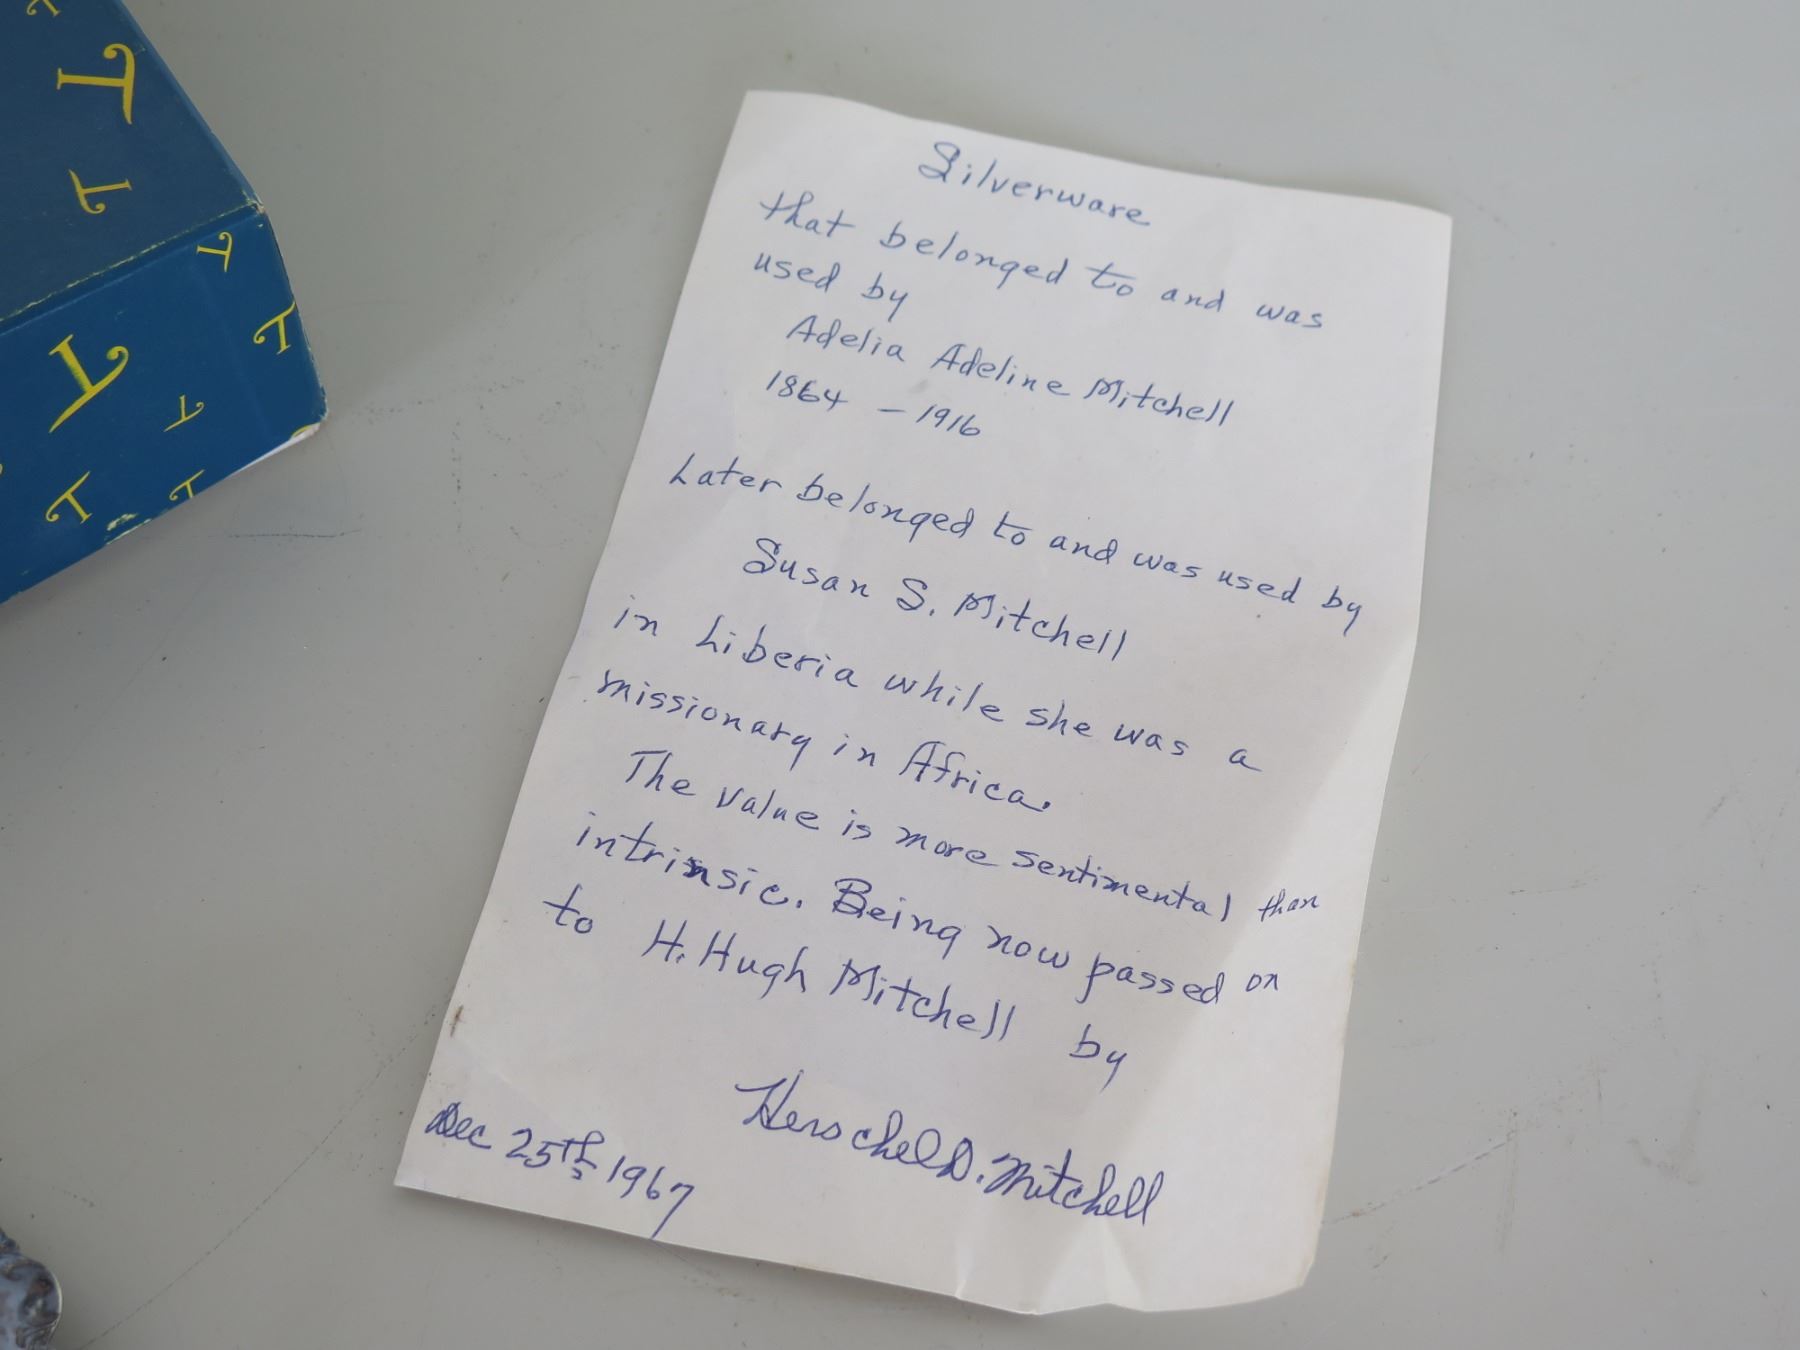 Silverware
that belonged to and was
used by
Adelia Adeline Mitchell
1864 - 1916
Later belonged to and was used by
Susan S. Mitchell
in Liberia while she was a
missionary in Africa.
The value is more sentimental than
intrinsic. Being now passed on
to H. Hugh Mitchell by
Herschel D. Mitchell
Dec 25th 1967
T
T
T
T
T
T
T
T